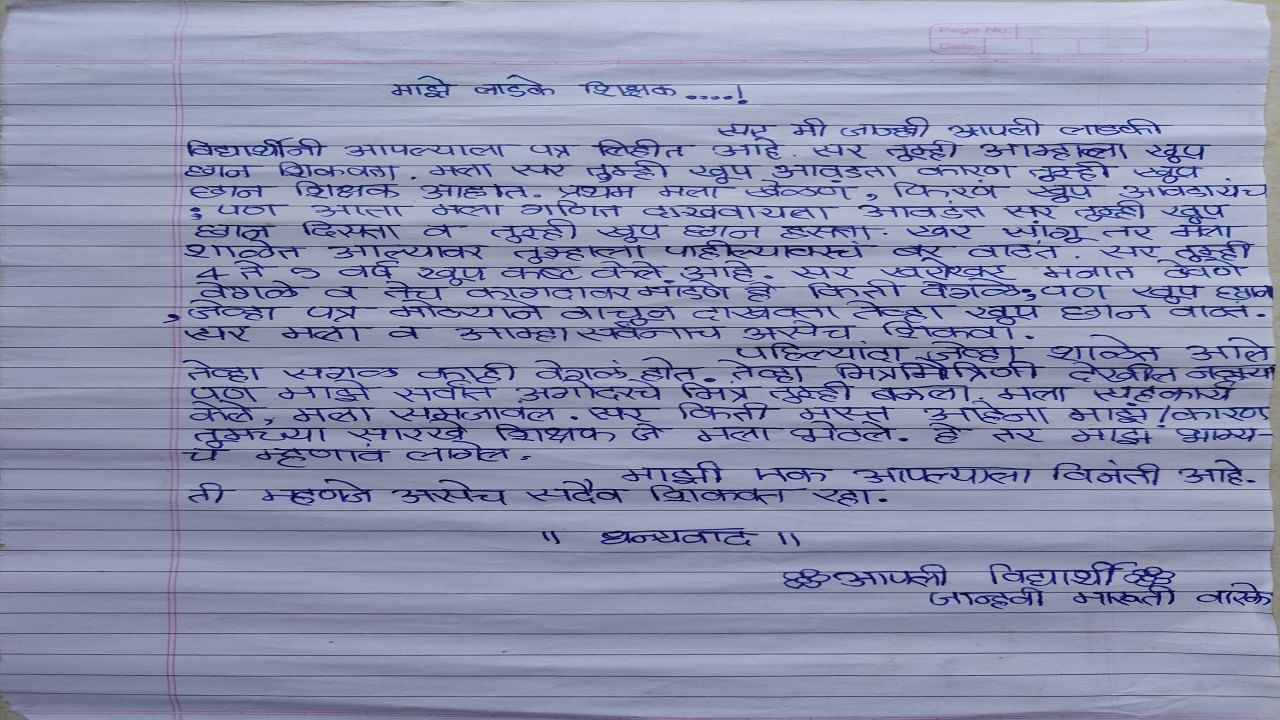 Page No.
Date
माझे लाडके शिक्षक.....!
सर मी जान्हवी आपली लाडकी
विद्यार्थीनी आपल्याला पत्र लिहीत आहे. सर तुम्ही आम्हाला खुप
छान शिकवता. मला सर तुम्ही खुप आवडता कारण तुम्ही खुप
छान शिक्षक आहात. प्रथम मला खेळण, फिरण खुप आवडायचं
; पण आता मला गणित दाखवायला आवडंत सर तुम्ही खुप
छान दिसता व तुम्ही खुप छान हसता. खर सांगू तर मला
शाळेत आल्यावर तुम्हाला पाहील्यावरचं बर वाटंत. सर तुम्ही
4 ते 5 वर्ष खुप कष्ट केले आहे. सर खरोखर मनात ठेवणं
वेगळे व तेच कागदावर मांडणे हे किती वेगळे; पण खुप छान
, जेव्हा पत्र मोठ्याने वाचुन दाखवता तेव्हा खुप छान वाटतं.
सर मला व आम्हा सर्वांनाच असेच शिकवा.
पहिल्यांदा जेव्हा शाळेत आले
तेव्हा सगळ काही वेगळं होत. तेव्हा मित्रमैत्रिणी देखील नव्हत्या
पण माझे सर्वात अगोदरचे मित्र तुम्ही बनला. मला सहकार्य
केले, मला समजावल. सर किती मस्त आहेना माझे! कारण
तुमच्या सारखे शिक्षक जे मला भेटले. हे तर माझे भाग्य-
च म्हणावं लागेल.
माझी एक आपल्याला विनंती आहे.
ती म्हणजे असेच सदैव शिकवत रहा.
॥ धन्यवाद ॥
आपली विद्यार्थी
जान्हवी मारूती वारके